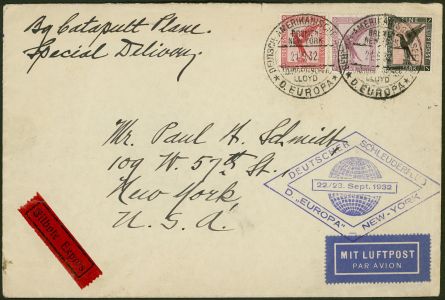 By Catapult Plane.
Special Delivery.
DEUTSCH-AMERIKANISCHE
BREMEN
NEW-YORK
32
LLOYD
* D. EUROPA *
BREMEN
LLOYD
* D. EUROPA *
Mr. Paul H. Schmidt
109 W. 57th St.,
New York
U. S. A.
DEUTSCHER SCHLEUDERFLUG
22/23. Sept. 1932
D. „EUROPA" – NEW-YORK
Eilbote Exprès
MIT LUFTPOST
PAR AVION